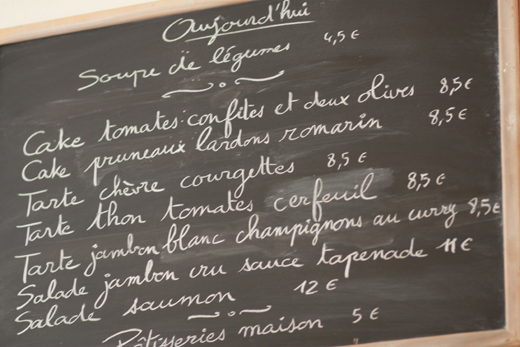 Aujourd'hui
Soupe de légumes 4,5 €
Cake tomates confites et deux olives 8,5 €
Cake pruneaux lardons romarin 8,5 €
Tarte chèvre courgettes 8,5 €
Tarte thon tomates cerfeuil 8,5 €
Tarte jambon blanc champignons au curry 8,5 €
Salade jambon cru sauce tapenade 11 €
Salade saumon 12 €
Pâtisseries maison 5 €